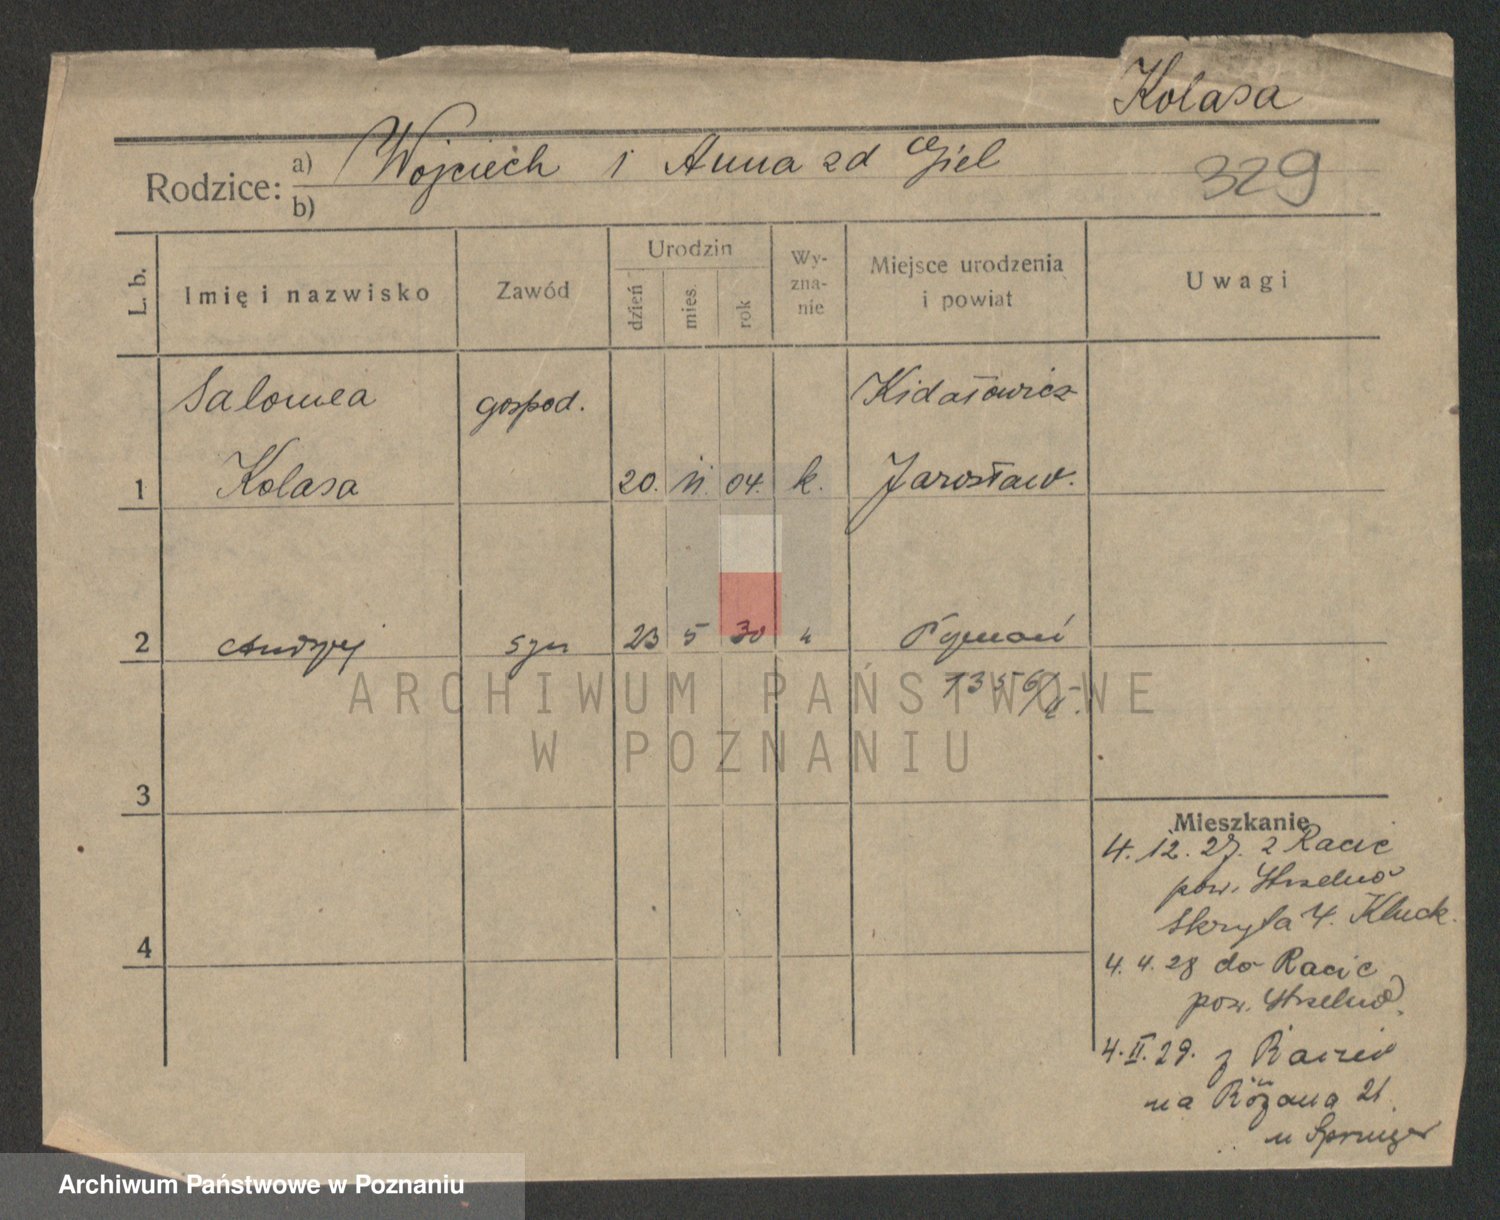 Kolasa
Rodzice: a) Wojciech i Anna zd Giel
b)
329
L. b.
Imię i nazwisko
Zawód
Urodzin
dzień
mies.
rok
Wy-
zna-
nie
Miejsce urodzenia
i powiat
Uwagi
Salomea gospod. Kidałowice
1 Kolasa 20. 11. 04. k. Jarosław.
2 Andrzej syn 23 5 30 " Poznań
1356/II.
ARCHIWUM PAŃSTWOWE
W POZNANIU
3
4
Mieszkanie
4. 12. 27. z Racic
pow. Strzelno
Skryta 4. Kluck.
4. 4. 28 do Racic
pow. Strzelno.
4. II. 29. z Racic
na Różana 21.
u Springer
Archiwum Państwowe w Poznaniu